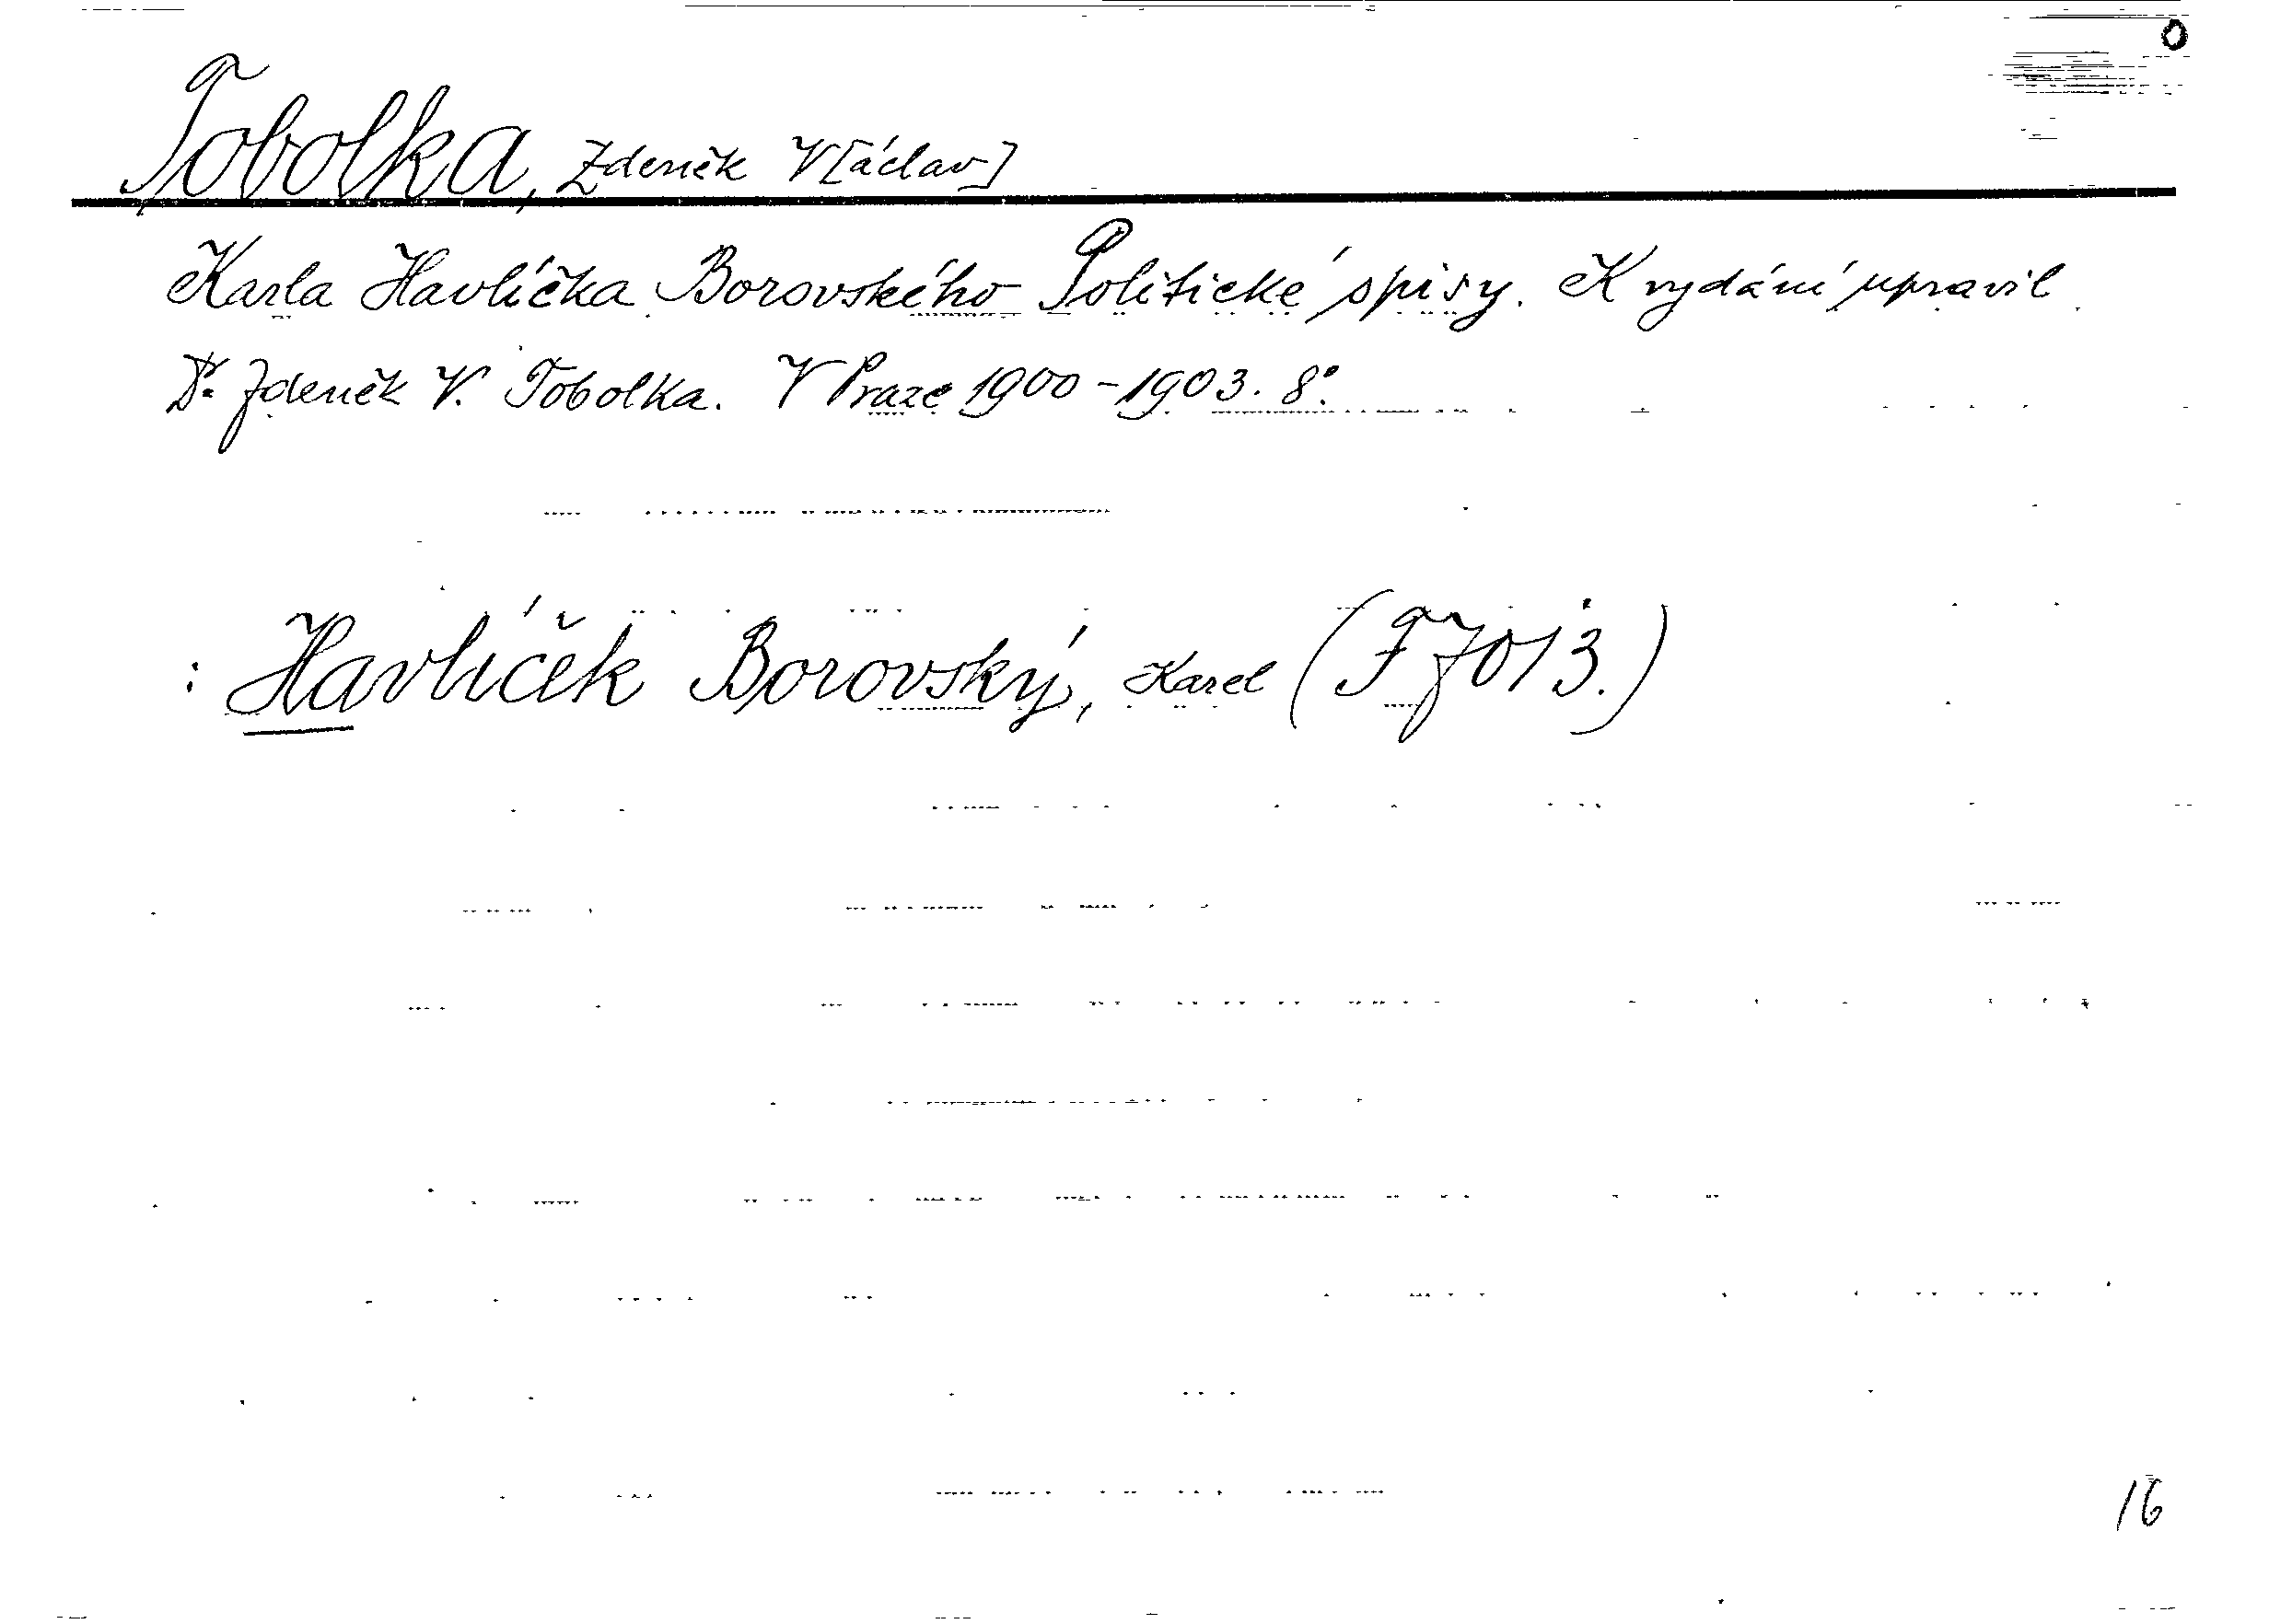 Tobolka, Zdeněk V[áclav]
Karla Havlíčka Borovského Politické spisy. K vydání upravil
Dr. Zdeněk V. Tobolka. V Praze 1900-1903. 8°.
: Havlíček Borovský, Karel (F 7013.)
16